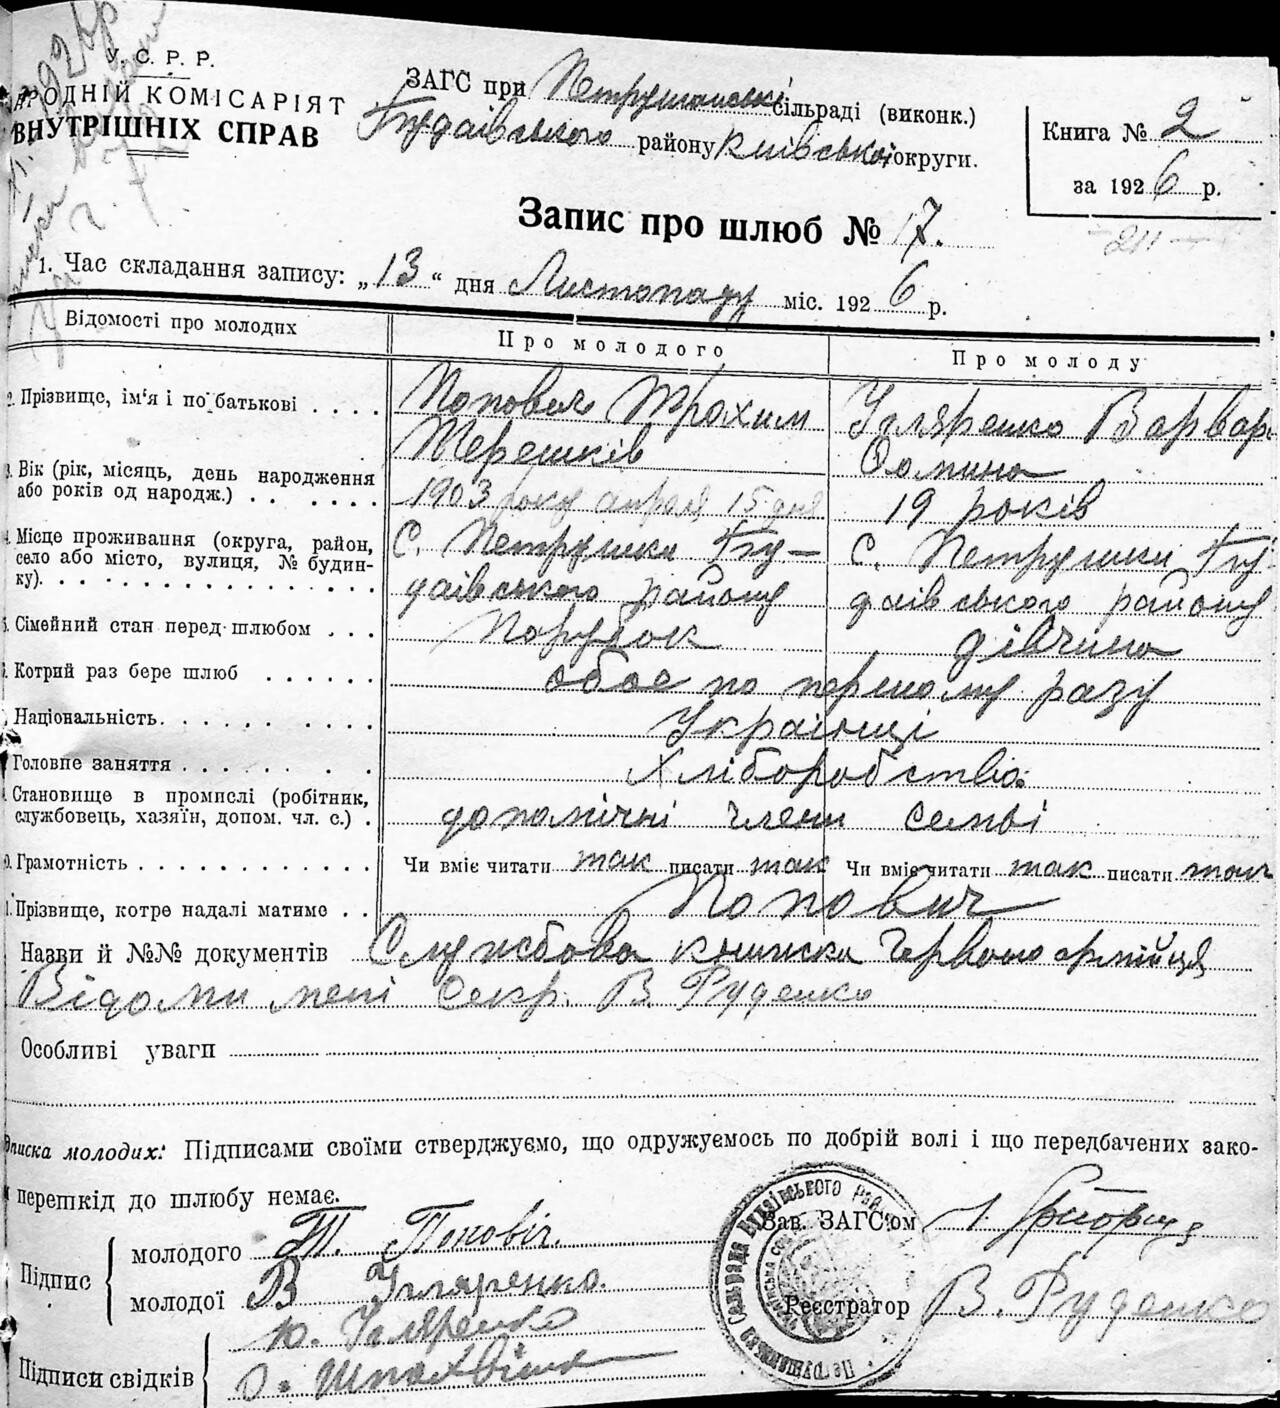 У. С. Р. Р.
НАРОДНІЙ КОМІСАРІЯТ
ВНУТРІШНІХ СПРАВ
ЗАГС при Петрушанські сільраді (виконк.)
Будаівського району Київськоі округи.
Книга № 2
за 1926 р.
Запис про шлюб № 17.
211
1. Час складання запису: „13“ дня Листопаду міс. 1926 р.
Відомості про молодих
Про молодого
Про молоду
2. Прізвище, ім‘я і по батькові . . . .
Попович Трохим
Терешків
Угляренко Варвар
Домина
3. Вік (рік, місяць, день народження
або років од народж.) . . . . . .
1903 року апреля 15 дня
19 років
4. Місце проживання (округа, район,
село або місто, вулиця, № будин-
ку). . . . . . . . . . . . . . .
С. Петрушки Бу-
даівського району
С. Петрушки Бу-
даівського району
5. Сімейний стан перед шлюбом . . .
Порубок
дівчина
6. Котрий раз бере шлюб . . . . . .
обоє по первому разу
7. Національність. . . . . . . . . .
Украінці
8. Головне заняття . . . . . . . . .
Хліборобство
9. Становище в промислі (робітник,
службовець, хазяїн, допом. чл. с.) .
допомічні члени семьі
10. Грамотність . . . . . . . . . . .
Чи вміє читати так писати так
Чи вміє читати так писати так
11. Прізвище, котре надалі матиме . .
Попович
Назви й №№ документів Службова книжка Червоноармійця
Відоми мені Секр. В. Руденко
Особливі уваги
Підписка молодих: Підписами своїми стверджуємо, що одружуємось по добрій волі і що передбачених зако-
перешкід до шлюбу немає.
Підпис
молодого Т. Попович.
молодої В Угляренко.
Підписи свідків
Ю. Угляренко
Зав. ЗАГС‘ом
Реєстратор В. Руденко
Петрушанська Сільрада Будаівського